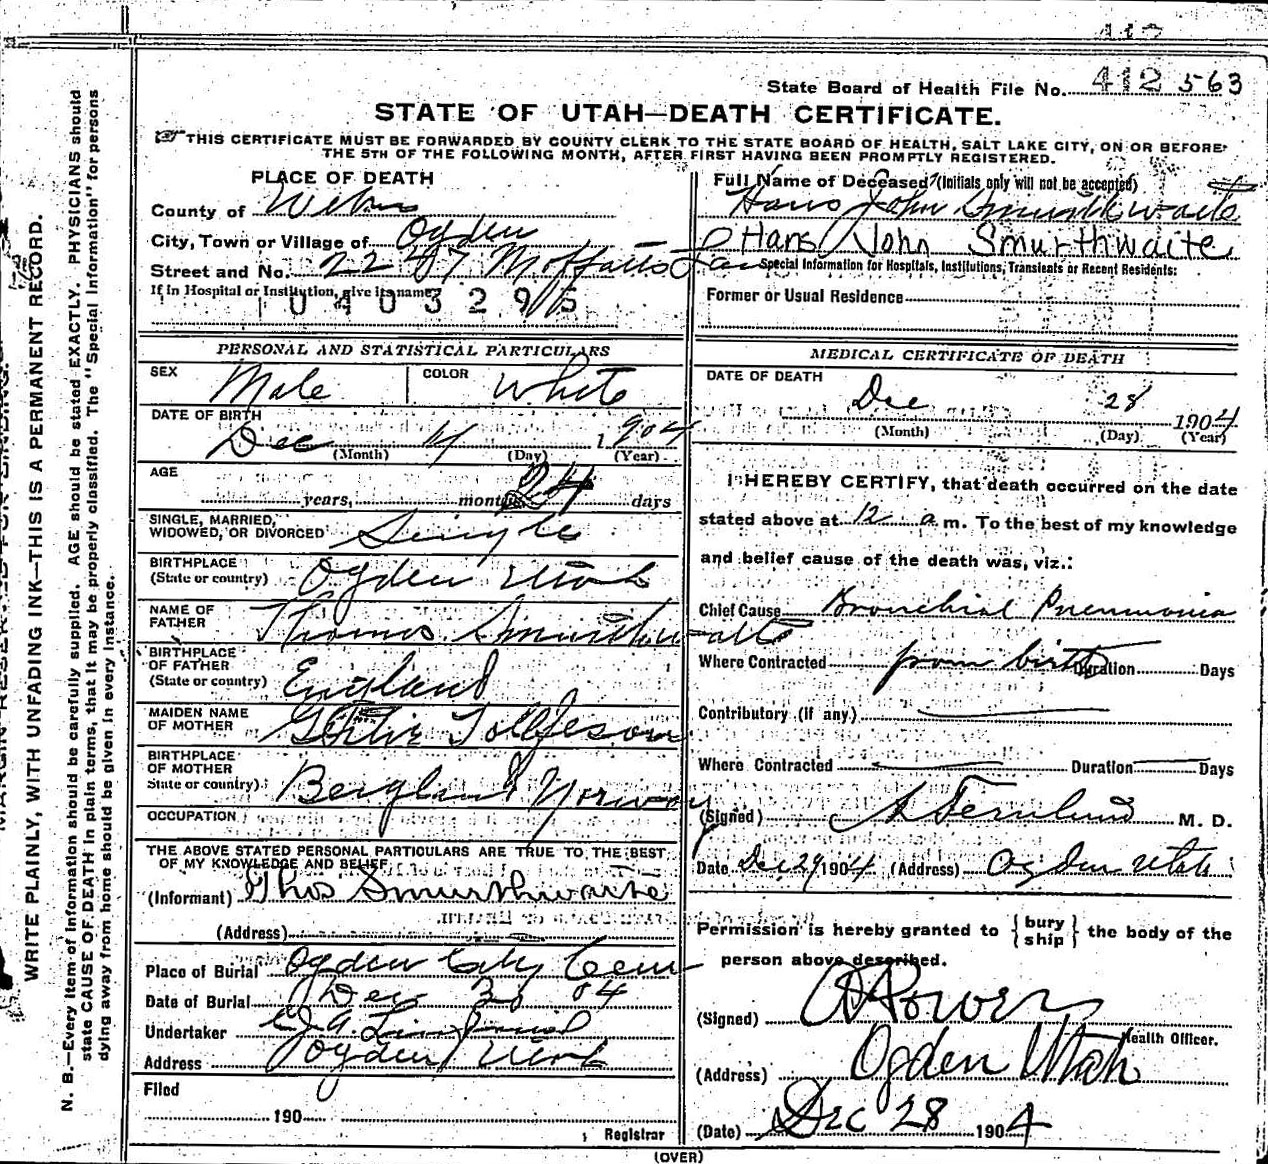 412 563
State Board of Health File No.
STATE OF UTAH—DEATH CERTIFICATE.
THIS CERTIFICATE MUST BE FORWARDED BY COUNTY CLERK TO THE STATE BOARD OF HEALTH, SALT LAKE CITY, ON OR BEFORE
THE 5TH OF THE FOLLOWING MONTH, AFTER FIRST HAVING BEEN PROMPTLY REGISTERED.
PLACE OF DEATH
County of Weber
City, Town or Village of Ogden
Street and No. 2247 Moffatts
If in Hospital or Institution, give its name
0403295
Full Name of Deceased (Initials only will not be accepted)
Hans John Smurthwaite
Hans John Smurthwaite
Special Information for Hospitals, Institutions, Transients or Recent Residents:
Former or Usual Residence
PERSONAL AND STATISTICAL PARTICULARS
SEX Male COLOR White
DATE OF BIRTH
Dec 4 1904
(Month) (Day) (Year)
AGE
years, months 24 days
SINGLE, MARRIED,
WIDOWED, OR DIVORCED Single
BIRTHPLACE
(State or country) Ogden Utah
NAME OF
FATHER Thomas Smurthwaite
BIRTHPLACE
OF FATHER
(State or country) England
MAIDEN NAME
OF MOTHER Tollefson
BIRTHPLACE
OF MOTHER
State or country) Norway
OCCUPATION
THE ABOVE STATED PERSONAL PARTICULARS ARE TRUE TO THE BEST
OF MY KNOWLEDGE AND BELIEF
(Informant) Thos Smurthwaite
(Address)
Place of Burial Ogden City Cem
Date of Burial Dec 30 04
Undertaker
Address Ogden Utah
Filed
190
Registrar
MEDICAL CERTIFICATE OF DEATH
DATE OF DEATH
Dec 28 1904
(Month) (Day) (Year)
I HEREBY CERTIFY, that death occurred on the date
stated above at 12 a m. To the best of my knowledge
and belief cause of the death was, viz.:
Chief Cause Bronchial Pneumonia
Where Contracted from birth Duration Days
Contributory (if any)
Where Contracted Duration Days
(Signed) M. D.
Date Dec 29 1904 (Address) Ogden Utah
Permission is hereby granted to {bury
ship} the body of the
person above described.
(Signed) Powers
Health Officer.
(Address) Ogden Utah
(Date) Dec 28 1904
(OVER)
WRITE PLAINLY, WITH UNFADING INK—THIS IS A PERMANENT RECORD.
N. B.—Every item of information should be carefully supplied. AGE should be stated EXACTLY. PHYSICIANS should
state CAUSE OF DEATH in plain terms, that it may be properly classified. The "Special Information" for persons
dying away from home should be given in every instance.